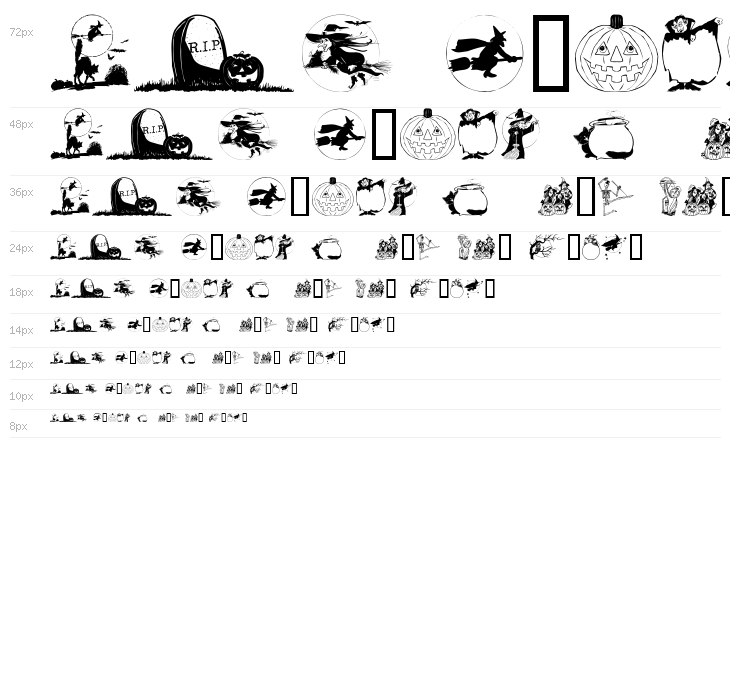 72px
R.I.P.
48px
R.I.P.
36px
R.I.P.
24px
18px
14px
12px
10px
8px